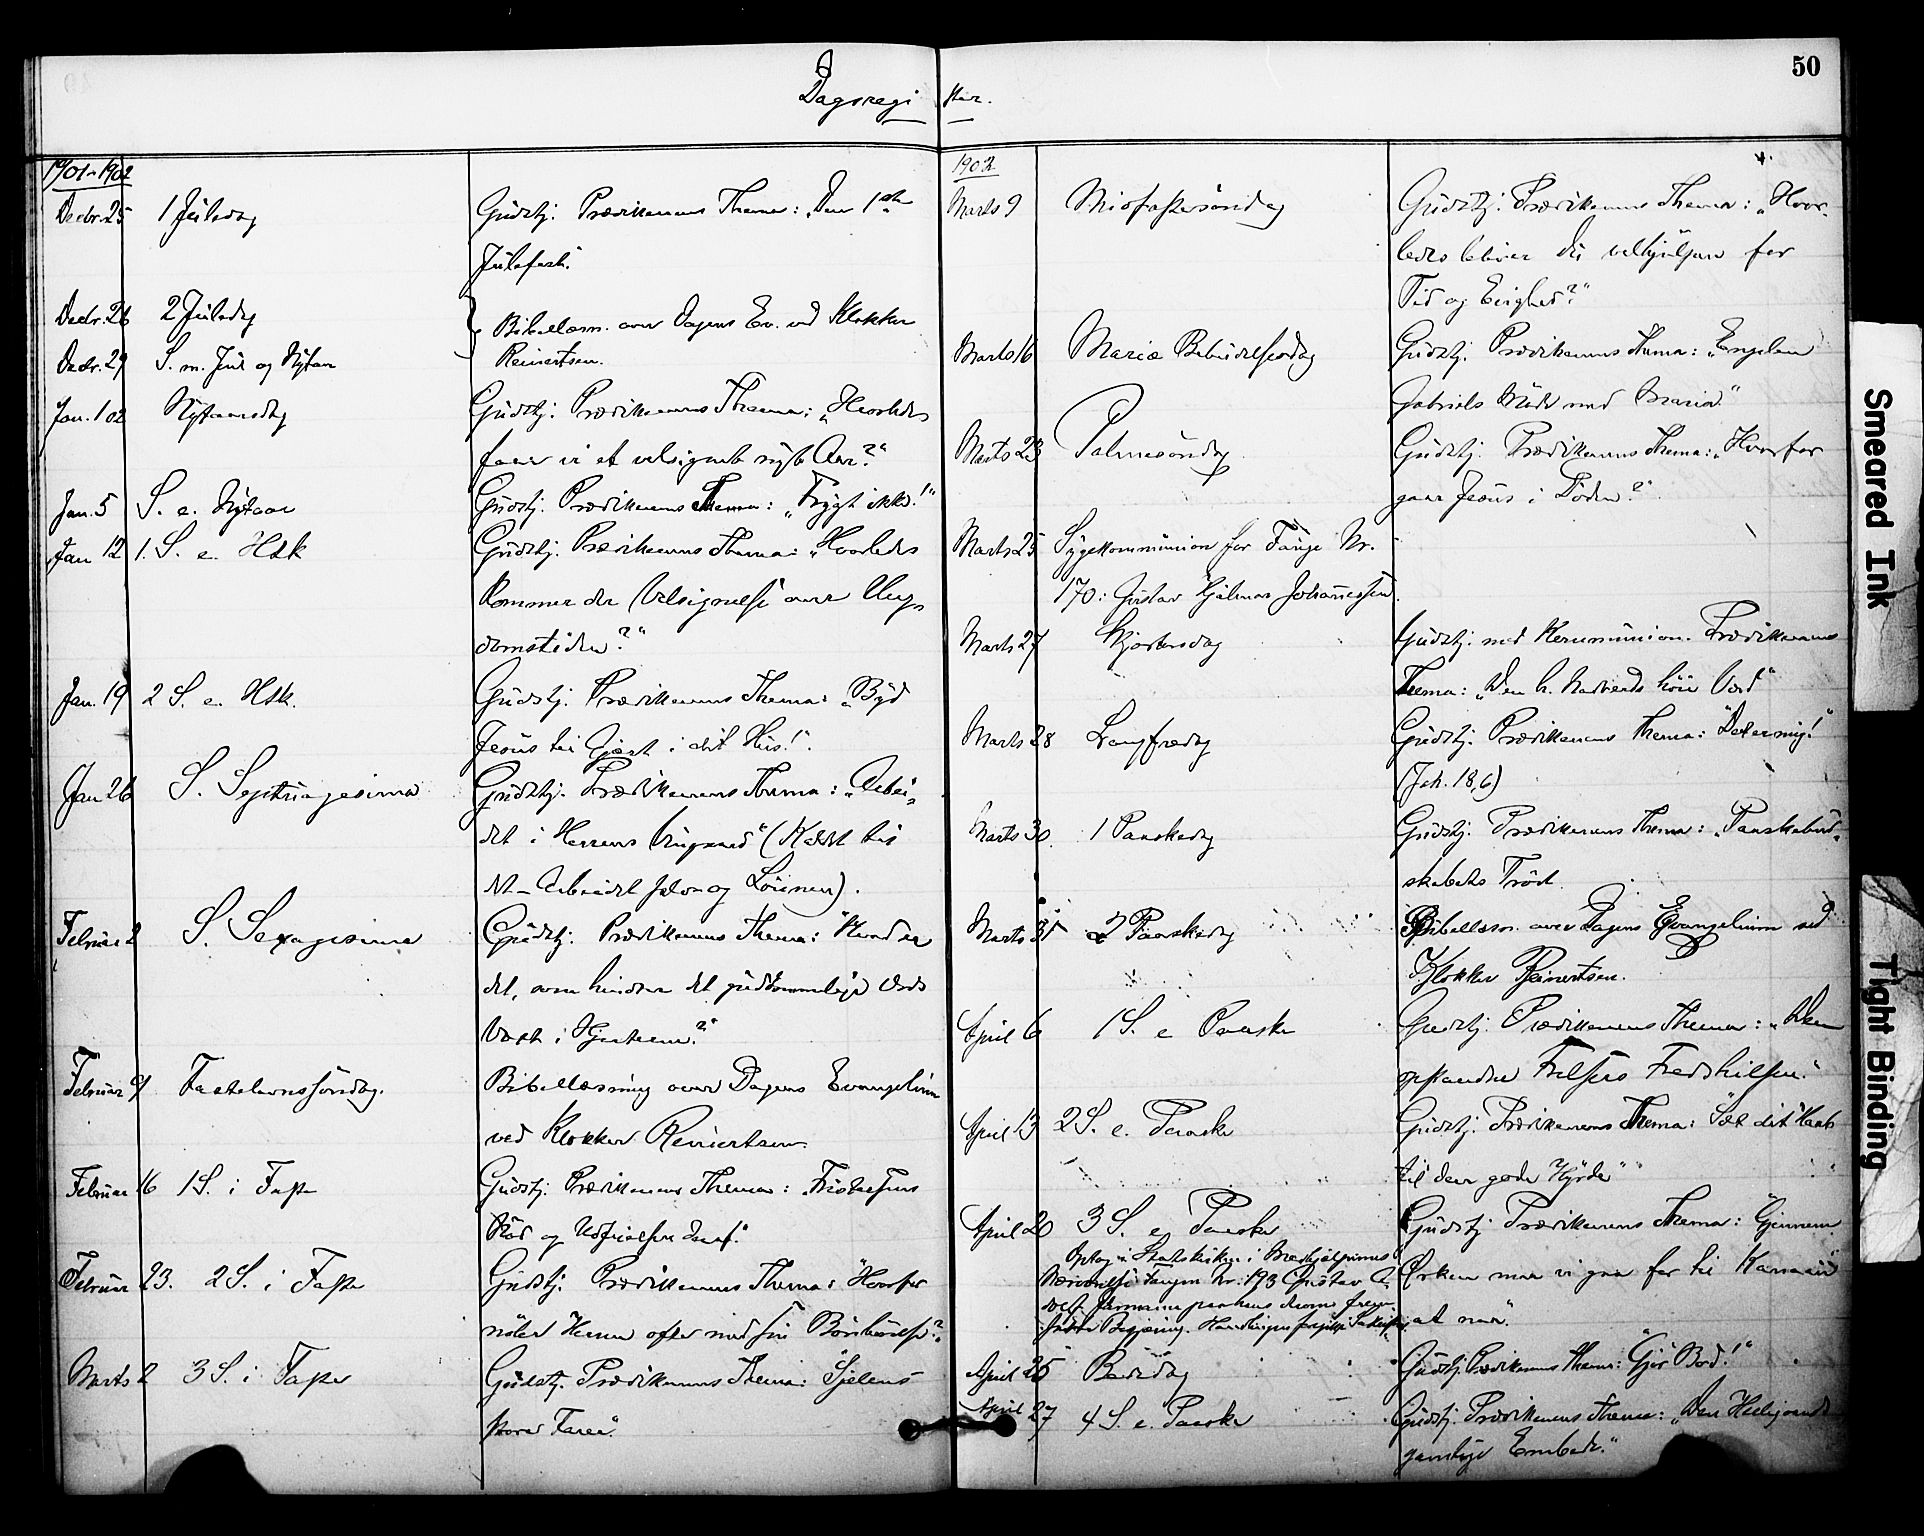 50
Dagsregister.
1901-1902
Decbr. 25 1 Juledag Gudstj. Prædikenens Thema: „Den 1ste
Julefest."
Decbr. 26 2 Juledag Bibellæsn. over Dagens Ev. ved Klokker
Decbr. 29 S. m. Jul og Nytaar Reinertsen.
Jan. 1 02 Nytaarsdag Gudstj. Prædikenens Thema: „Hvorledes
faar vi et velsignet nyt Aar?"
Jan. 5 S. e. Nytaar Gudstj. Prædikenens Thema: „Frygt ikke!"
Jan 12 1. S. e. H3k Gudstj. Prædikenens Thema: „Hvorledes
kommer der Velsignelse over Ung-
domstiden?"
Jan. 19 2 S. e. H3k. Gudstj. Prædikenens Thema: „Byd
Jesus til Gjest i dit Hus!".
Jan 26 S. Septuagesima Gudstj. Prædikenens Thema: „Arbei-
det i Herrens Vingaard" (Kaldet til
det – Arbeidet selv og Lönnen).
Februar 2 S. Sexagesima Gudstj. Prædikenens Thema: "Hvad er
det, som hindrer det guddommelige Ords
Vært i Hjerterne?"
Februar 9 Fastelavnssöndag. Bibellæsning over Dagens Evangelium
ved Klokker Reinertsen.
Februar 16 1 S. i Faste Gudstj. Prædikenens Thema:
Nöd og Udfrielsen deraf."
Februar 23. 2 S. i Faste Gudstj. Prædikenens Thema: "Hvorfor
nöler Herren ofte med sin Bönhörelse?"
Marts 2 3 S. i Faste Gudstj. Prædikenens Thema: "Sjelens
store Fare".
1902
Marts 9 Midfastesöndag Gudstj. Prædikenens Thema: „Hvor-
ledes bliver du velhjulpen for
Tid og Evighed?"
Marts 16 Mariæ Bebudelsesdag Gudstj. Prædikenens Thema: „Engelen
Gabriels Möde med Maria."
Marts 23 Palmesöndag Gudstj. Prædikenens Thema: „Hvorfor
gaar Jesus i Döden?"
Marts 25 Sygekommunion for Fange Nr.
170: Gustav Hjalmar Johannessen.
Marts 27 Skjærtorsdag Gudstj. med Kommunion. Prædikenens
Thema: „Den h. Nadverds höie Værd"
Marts 28 Langfredag Gudstj. Prædikenens Thema: "Det er mig!"
(Joh. 18,6)
Marts 30. 1 Paaskedag Gudstj. Prædikenens Thema: „Paaskebud-
skabets Tröst.
Marts 31 2 Paaskedag Bibellæsn. over Dagens Evangelium ved
Klokker Reinertsen.
April 6 1 S. e Paaske Gudstj. Prædikenens Thema: „Den
opstandne Frelsers Fredshilsen."
April 13 2 S. e. Paaske Gudstj. Prædikenens Thema: "Sæt dit Haab
til den gode Hyrde"
April 20 3 S. e. Paaske Gudstj. Prædikenens Thema: "Gjennem
Optog i Statskirken i
Nærværelse Fangen Nr. 193 Gustav A- Örken maa vi gaa for til Kanaan
dolf
Begjæring. at naa".
April 25 Bededag Gudstj. Prædikenens Thema: "Gjör Bod!"
April 27 4 S. e. Paaske Gudstj. Prædikenens Thema: „Den Helligaands
gjerning Embede."
Smeared Ink
Tight Binding